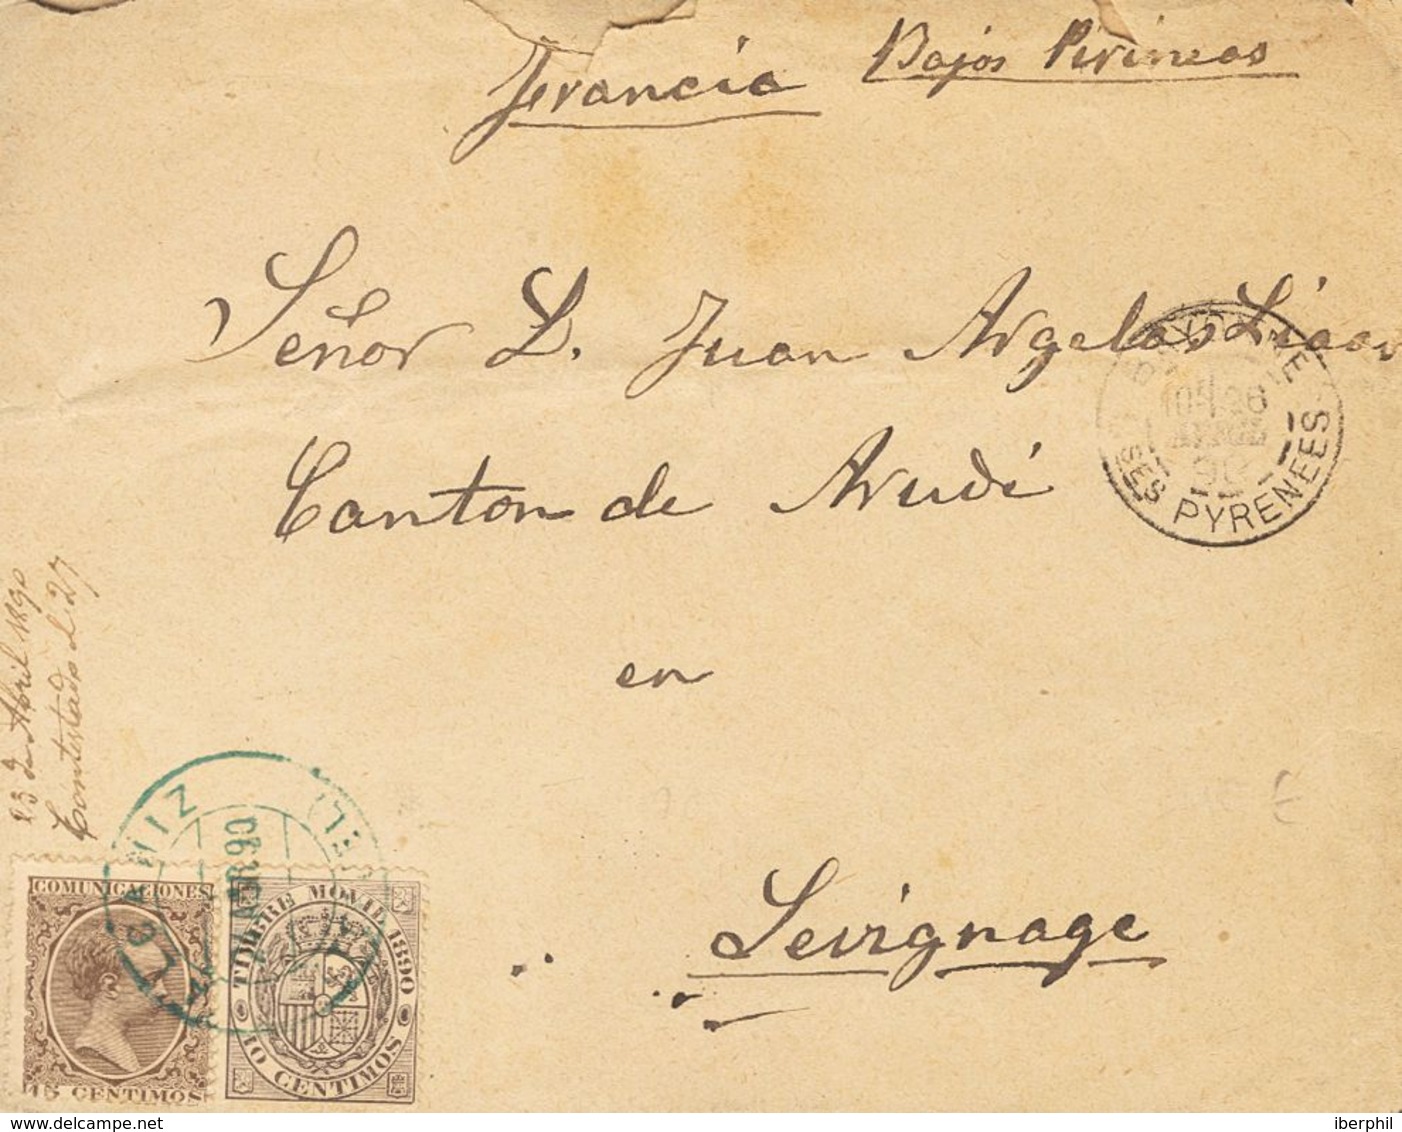 Francia Bajos Pirineos
Señor D. Juan Argelas Licar
Canton de Arudi
en
Sevignage
23 de Abril 1890
Contestado el 27
BAYONNE
26
AVRIL
90
SES PYRENEES
ABR 90
COMUNICACIONES
15 CENTIMOS
TIMBRE MOVIL 1890
10 CENTIMOS
iberphil